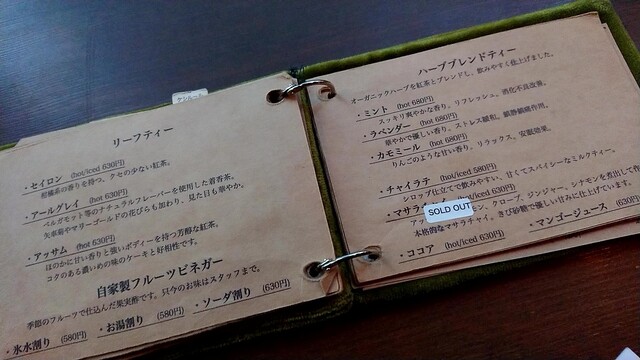 リーフティー
・セイロン (hot/iced 630円)
柑橘系の香りを持つ、クセの少ない紅茶。
・アールグレイ (hot 630円)
ベルガモット等のナチュラルフレーバーを使用した着香茶。
矢車菊やマリーゴールドの花びらも加わり、見た目も華やか。
・アッサム (hot 630円)
ほのかに甘い香りと強いボディーを持つ芳醇な紅茶。
コクのある濃いめの味のケーキと好相性です。
自家製フルーツビネガー
季節のフルーツで仕込んだ果実酢です。只今のお味はスタッフまで。
・氷水割り (580円) ・お湯割り (580円) ・ソーダ割り (630円)
ハーブブレンドティー
オーガニックハーブを紅茶とブレンドし、飲みやすく仕上げました。
・ミント (hot 680円)
スッキリ爽やかな香り、リフレッシュ、消化不良改善。
・ラベンダー (hot 680円)
華やかで優しい香り、ストレス緩和、鎮静鎮痛作用。
・カモミール (hot 680円)
りんごのような甘い香り、リラックス、安眠効果。
・チャイラテ (hot/iced 580円)
シロップ仕立てで飲みやすい、甘くてスパイシーなミルクティー。
・マサラチャイ (hot/iced 630円)
SOLD OUT
クローブ、ジンジャー、シナモンを煮出して作
本格的なマサラチャイ。きび砂糖で優しい甘みに仕上げています。
・ココア (hot/iced 630円) ・マンゴージュース (630円)